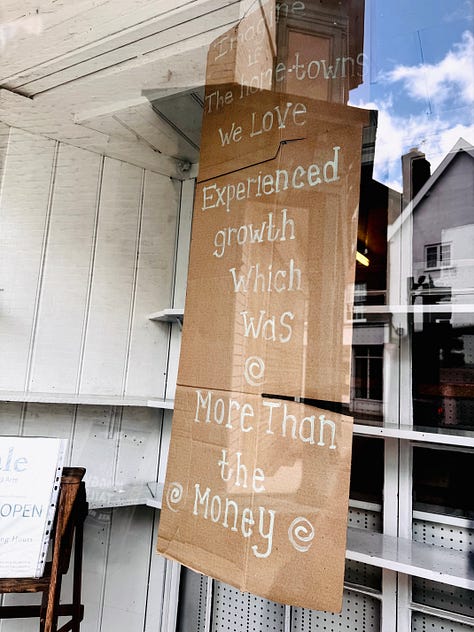 Imagine
if
The home-towns
We Love
Experienced
growth
Which
Was
More Than
the
Money
OPEN